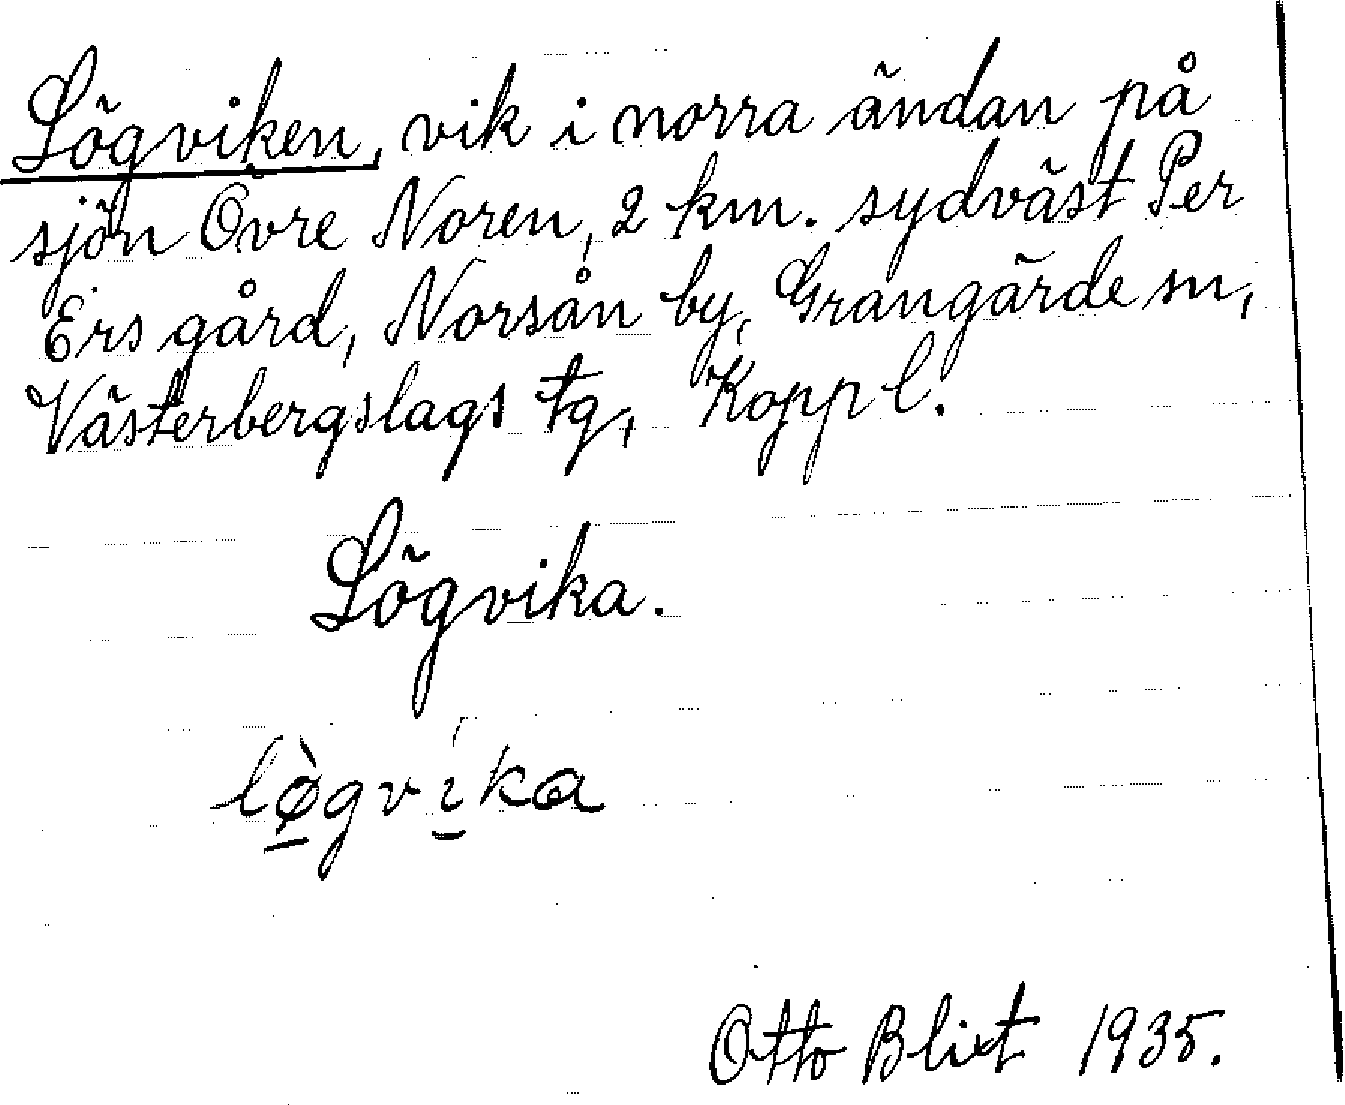 Lögviken, vik i norra ändan på
sjön Övre Noren, 2 km. sydväst Per
Ers gård, Norsån by, Grangärde sn,
Västerbergslags tg, Kopp l.
Lögvika.
lø̱̀gvi̱ka
Otto Blixt 1935.